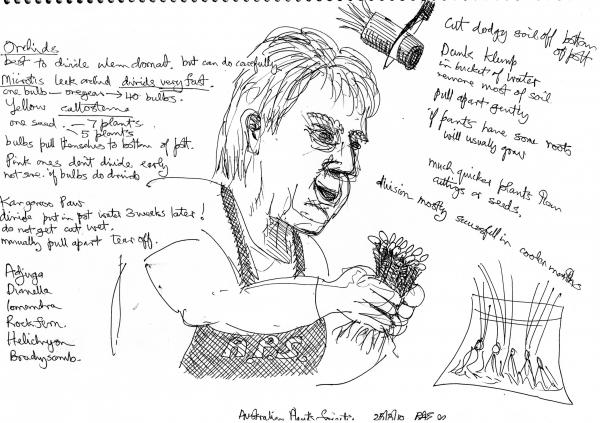 Orchids
best to divide when dormat. but can do carefully
Microtis leek orchid divide very fast.
one bulb — one year → 40 bulbs.
Yellow
one seed — 7 plants
5 plants
bulbs pull themselves to bottom of pot.
Pink ones don't divide early
not sure if bulbs do
Kangaroo Paw
divide put in pot water 3 weeks later!
do not get cat wet.
manually pull apart tear off.
Ajuga
Dianella
lomandra
Rock fern
Helichryson
Bradyscomb
Cut dodgy soil off bottom
of pot
Dunk klump
in bucket of water
remove most of soil
pull apart gently
if pants have some roots
will usually grow
much quicker plants than
cuttings or seeds.
division mostly sucessfull in cooler months
A.P.S.
Australian Plants